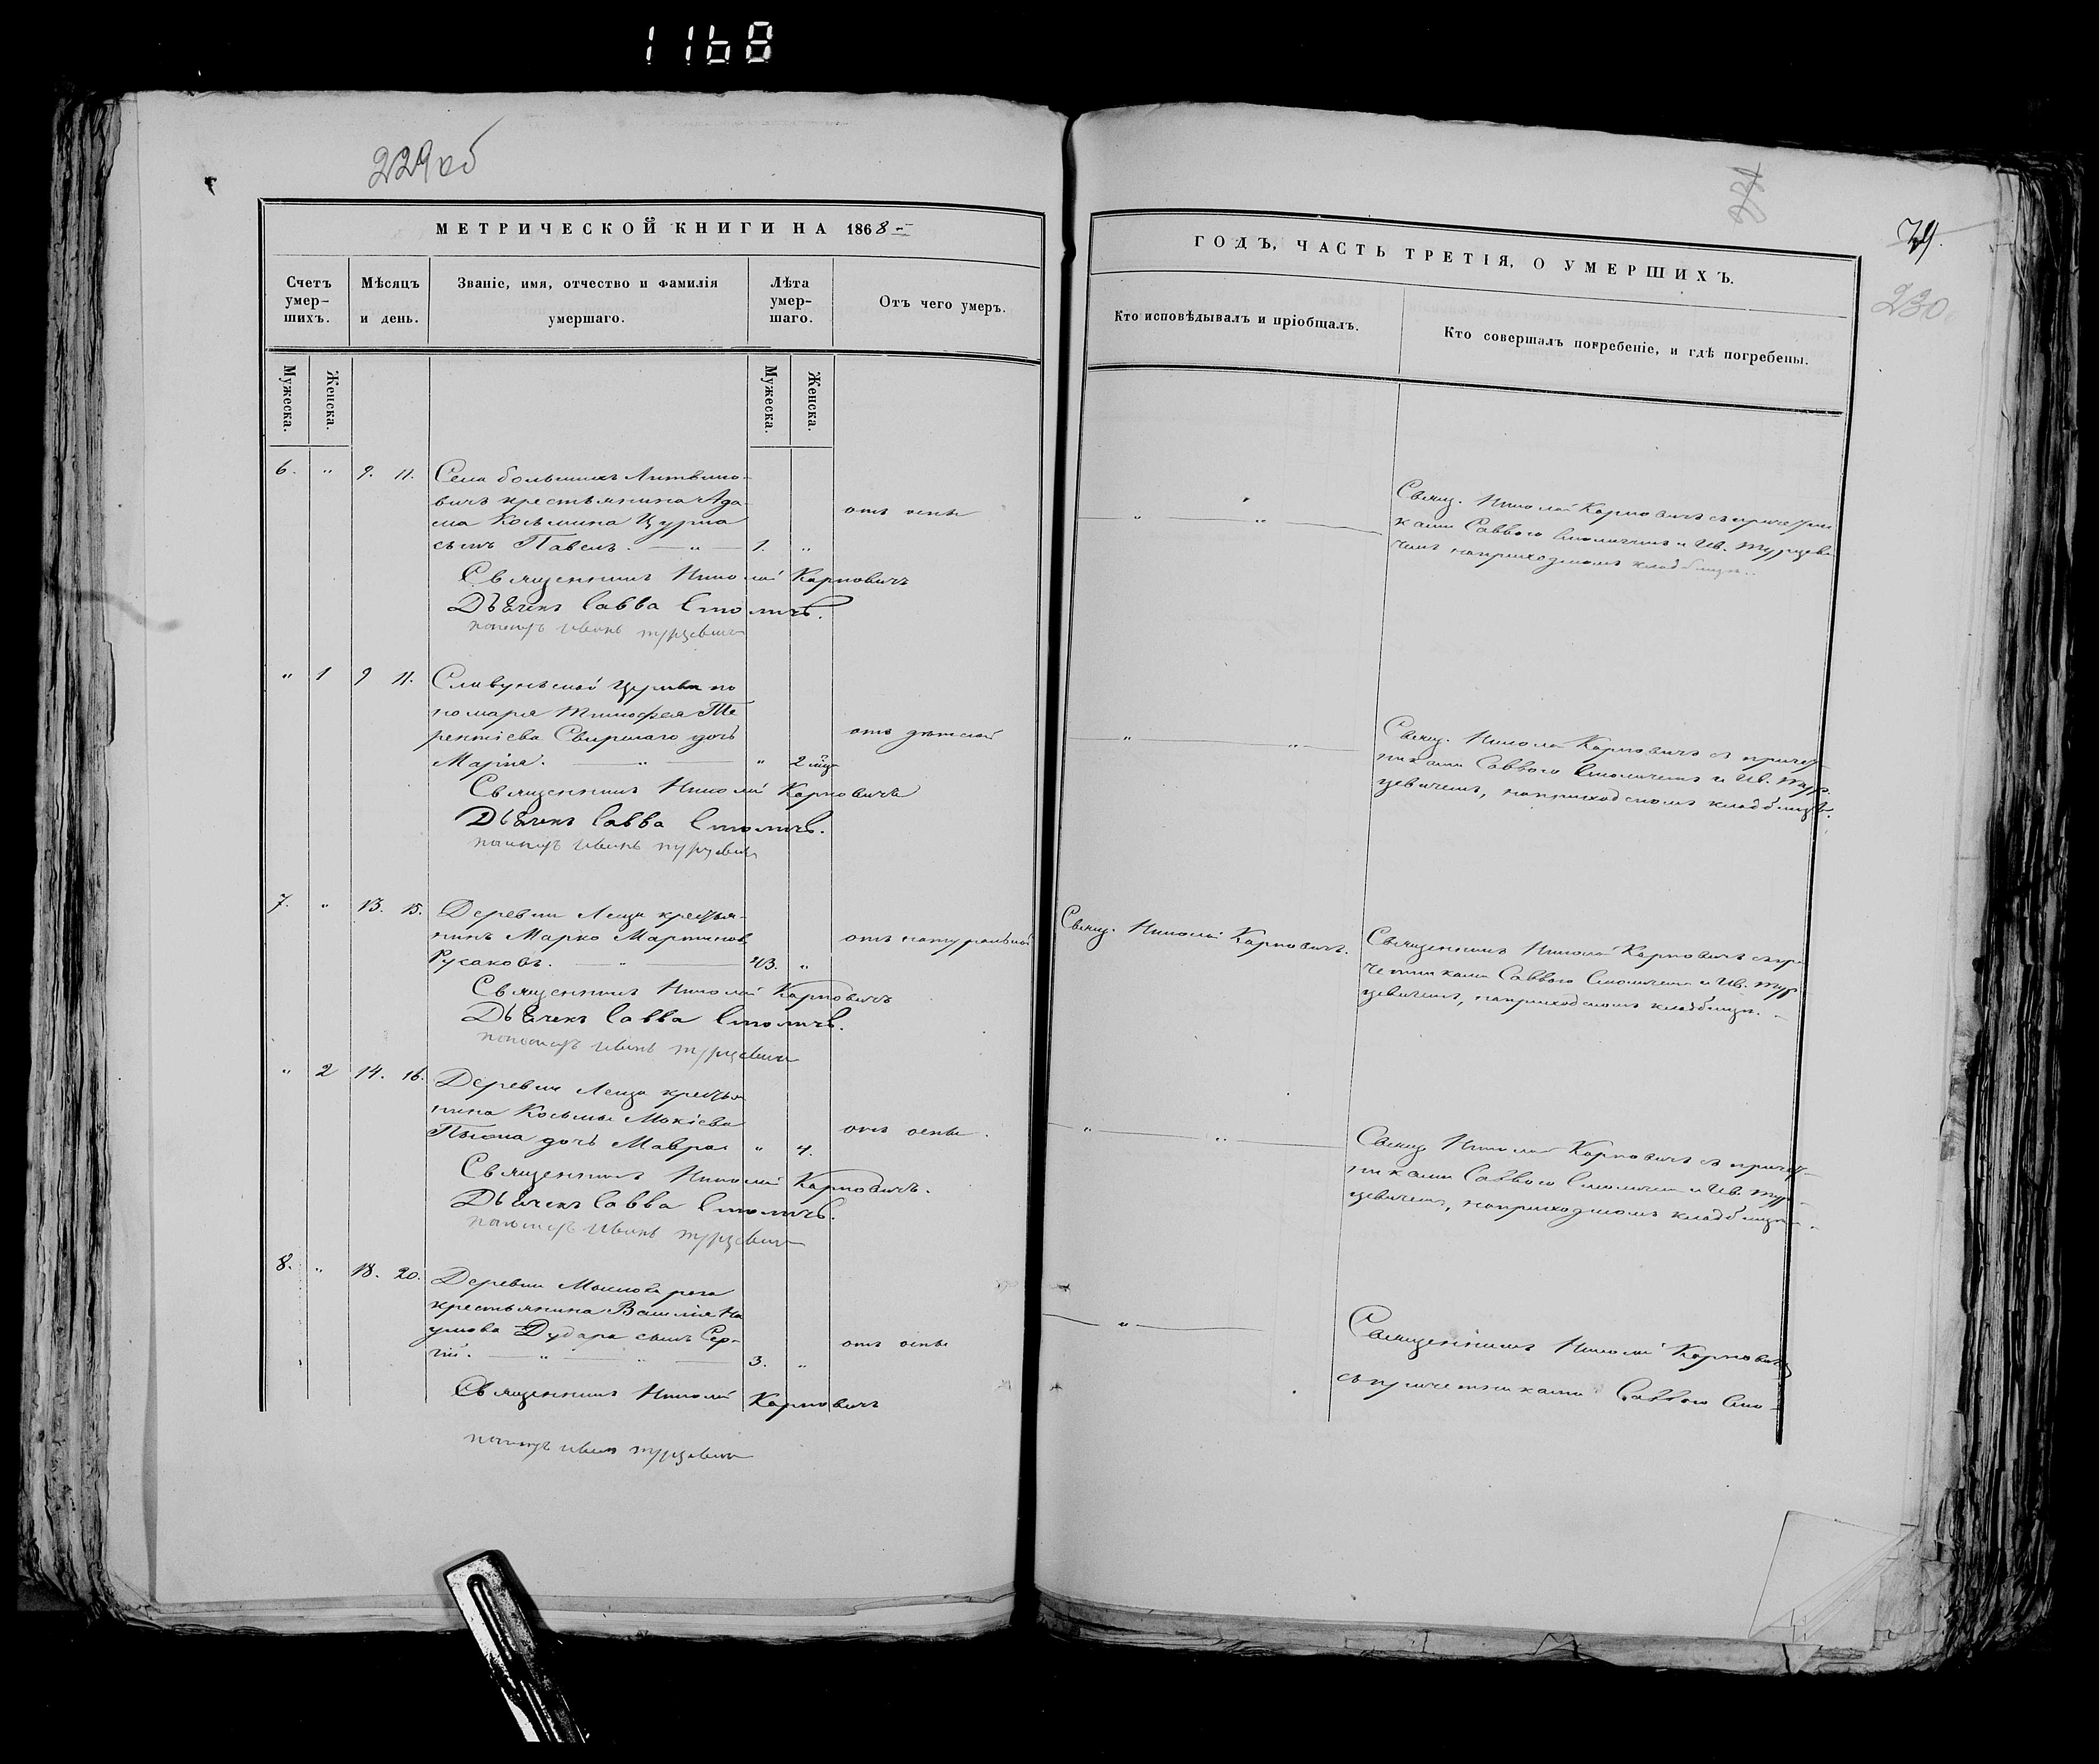 1168
229 об
МЕТРИЧЕСКОЙ КНИГИ НА 1868
Счетъ умер-шихъ.
Мѣсяцъ и день.
Званіе, имя, отчество и фамилія умершаго.
Лѣта умер-шаго.
Отъ чего умеръ.
Мужеска.
Женска.
Мужеска.
Женска.
6. " 9. 11. Села большихъ Литвино-
вичъ крестьянина Ада-
ма Косьмина Цурма
отъ оспы
сынъ Павелъ. — " — 1. "
Священникъ Николай Карповичъ
Дьячекъ Савва Смоличъ.
пономарь Иванъ Турцевичъ
" 1 9 11. Церкви по
номаря Тимофея Те
рентіева Свирскаго дочь
отъ дѣтской
Марія. — " — " 2 мца
Священникъ Николай Карповичъ
Дьячекъ Савва Смоличъ.
пономарь Иванъ Турцевичъ
7. " 13. 15. Деревни Лещи крестья-
нинъ Марко Мартиновъ
отъ натуральной
Русаковъ. — " — 43. "
Священникъ Николай Карповичъ
Дьячекъ Савва Смоличъ.
пономарь Иванъ Турцевичъ
" 2 14. 16. Деревни Лещи крестья
нина Косьмы Мокіева
отъ оспы.
дочь Мавра " 4.
Священникъ Николай Карповичъ.
Дьячекъ Савва Смоличъ.
пономарь Иванъ Турцевичъ
8. " 18. 20. Деревни
крестьянина Василія На
умова Дудара сынъ Сер-
отъ оспы
гій. — " — " — 3. "
Священникъ Николай Карповичъ
пономарь Иванъ Турцевичъ
79.
230
ГОДЪ, ЧАСТЬ ТРЕТІЯ, О УМЕРШИХЪ.
Кто исповѣдывалъ и пріобщалъ.
Кто совершалъ погребеніе, и гдѣ погребены.
" — " — Свящ. Николай Карповичъ съ причетни
ками Саввою Смоличемъ и Ив. Турцеви
чемъ на приходскомъ кладбищѣ.
" — " — Свящ. Николай Карповичъ съ причет
никами Саввою Смоличемъ и Ив. Тур-
цевичемъ, на приходскомъ кладбищѣ.
Свящ. Николай Карповичъ.
Священникъ Николай Карповичъ съ при
четниками Саввою Смоличемъ и Ив. Тур
цевичемъ, на приходскомъ кладбищѣ.
" — " — Свящ. Николай Карповичъ съ причет
никами Саввою Смоличемъ и Ив. Тур-
цевичемъ, на приходскомъ кладбищѣ.
— " — Священникъ Николай Карповичъ
съ причетниками Саввою Смо-